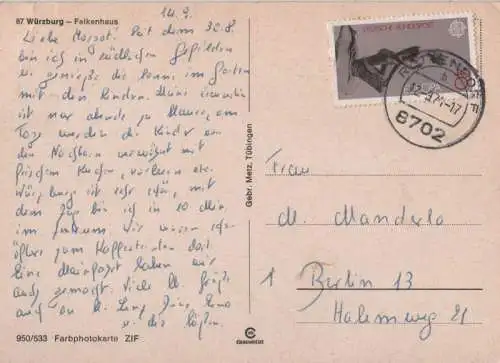 87 Würzburg – Falkenhaus
14.9.
Liebe Margot! Seit dem 30.8.
bin ich in südlichen Gefilden
u. genieße die Sonne im Garten
mit den Kindern. Meine
ist nur abends zu Hause, am
Tage werden die Kinder von
den Nachbarn verwöhnt mit
frischem Kuchen, etc.
Würzburg ist sehr schön, mit
dem Zug bin ich in 10 Min.
im Zentrum. Wir waren schon
öfter zum Kaffeetrinken dort.
Eine Mainfahrt haben wir
auch gemacht. Viele lb. Grüße
auch an
950/533 Farbphotokarte ZIF
Gebr. Metz, Tübingen
DEUTSCHE BUNDESPOST
8702
Frau
M. Manderla
1 Berlin 13
Halemweg 21